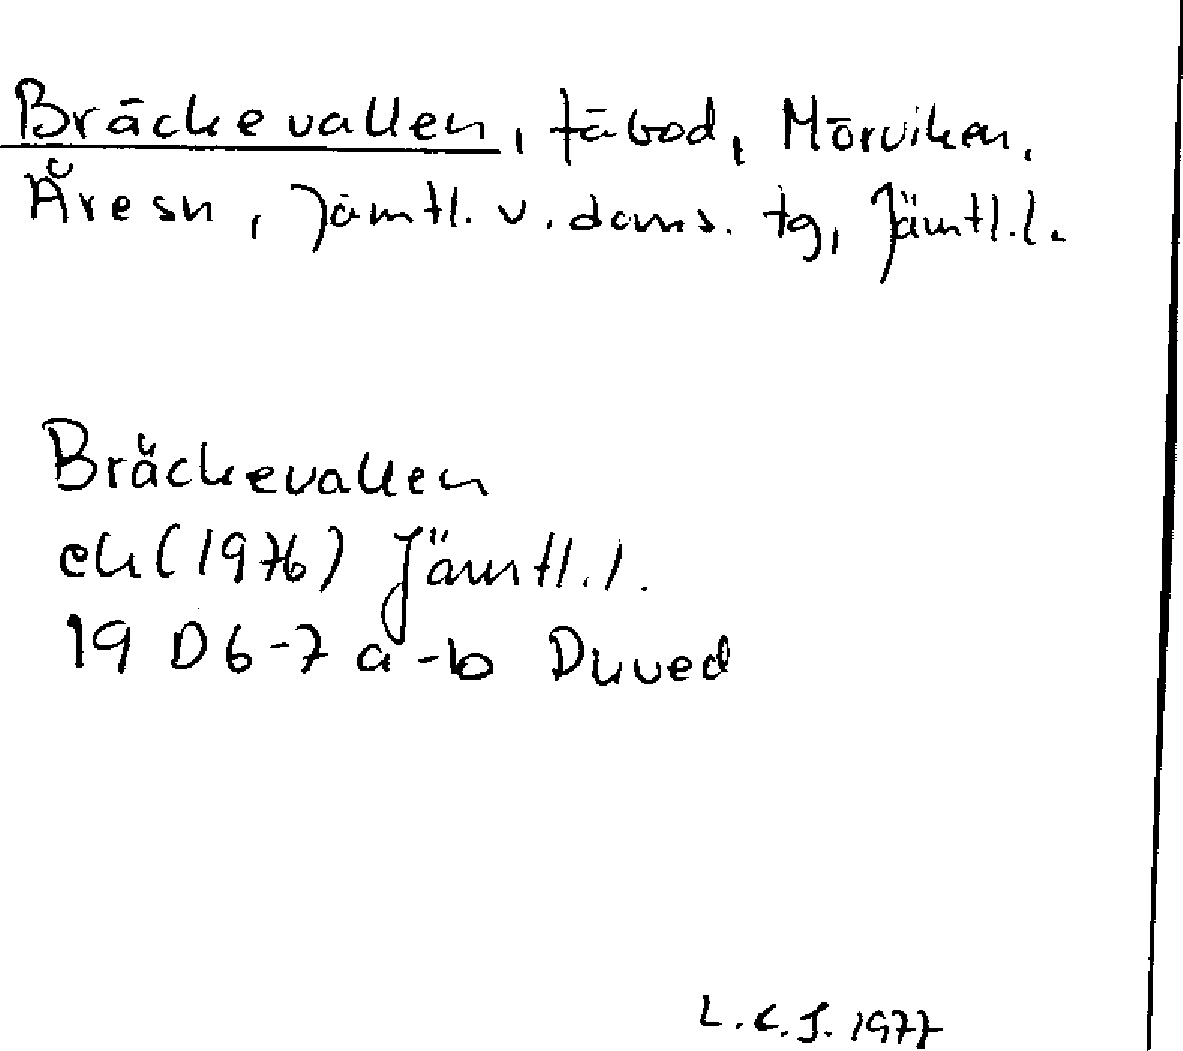 Bräckevallen, fäbod, Mörviken,
Åre sn, Jämtl. v. doms. tg, Jämtl.l.
Bräckevallen
ek (1976) Jämtl.l.
19 D 6-7 a-b Duved
L.C.J. 1977